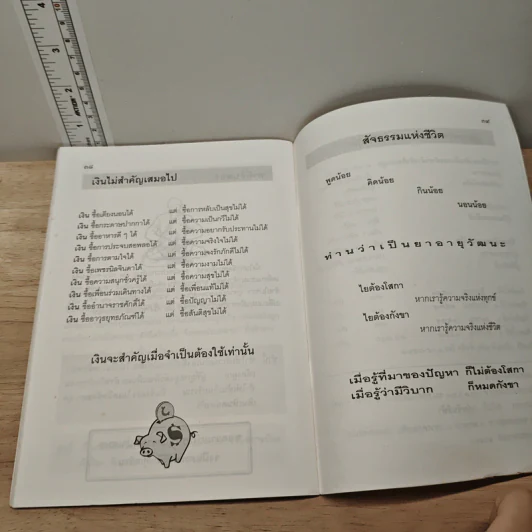 ๓๘
เงินไม่สำคัญเสมอไป
เงิน ซื้อเตียงนอนได้ แต่ ซื้อการหลับเป็นสุขไม่ได้
เงิน ซื้อกระดาษปากกาได้ แต่ ซื้อความเป็นกวีไม่ได้
เงิน ซื้ออาหารดี ๆ ได้ แต่ ซื้อความอยากรับประทานไม่ได้
เงิน ซื้อการประจบสอพลอได้ แต่ ซื้อความจริงใจไม่ได้
เงิน ซื้อการตามใจได้ แต่ ซื้อความจงรักภักดีไม่ได้
เงิน ซื้อเพชรนิลจินดาได้ แต่ ซื้อความงามไม่ได้
เงิน ซื้อความสนุกชั่วครู่ได้ แต่ ซื้อความสุขไม่ได้
เงิน ซื้อเพื่อนร่วมเดินทางได้ แต่ ซื้อเพื่อนแท้ไม่ได้
เงิน ซื้ออำนาจราชศักดิ์ได้ แต่ ซื้อปัญญาไม่ได้
เงิน ซื้ออาวุธยุทธภัณฑ์ได้ แต่ ซื้อสันติสุขไม่ได้
เงินจะสำคัญเมื่อจำเป็นต้องใช้เท่านั้น
๓๙
สัจธรรมแห่งชีวิต
พูดน้อย
คิดน้อย
กินน้อย
นอนน้อย
ท่านว่าเป็นยาอายุวัฒนะ
ใยต้องโสกา
หากเรารู้ความจริงแห่งทุกข์
ใยต้องกังขา
หากเรารู้ความจริงแห่งชีวิต
เมื่อรู้ที่มาของปัญหา ก็ไม่ต้องโสกา
เมื่อรู้ว่ามีวิบาก ก็หมดกังขา